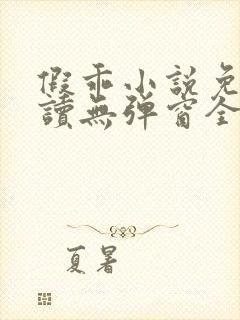 假乖小説免
讀無彈窗全
夏暑